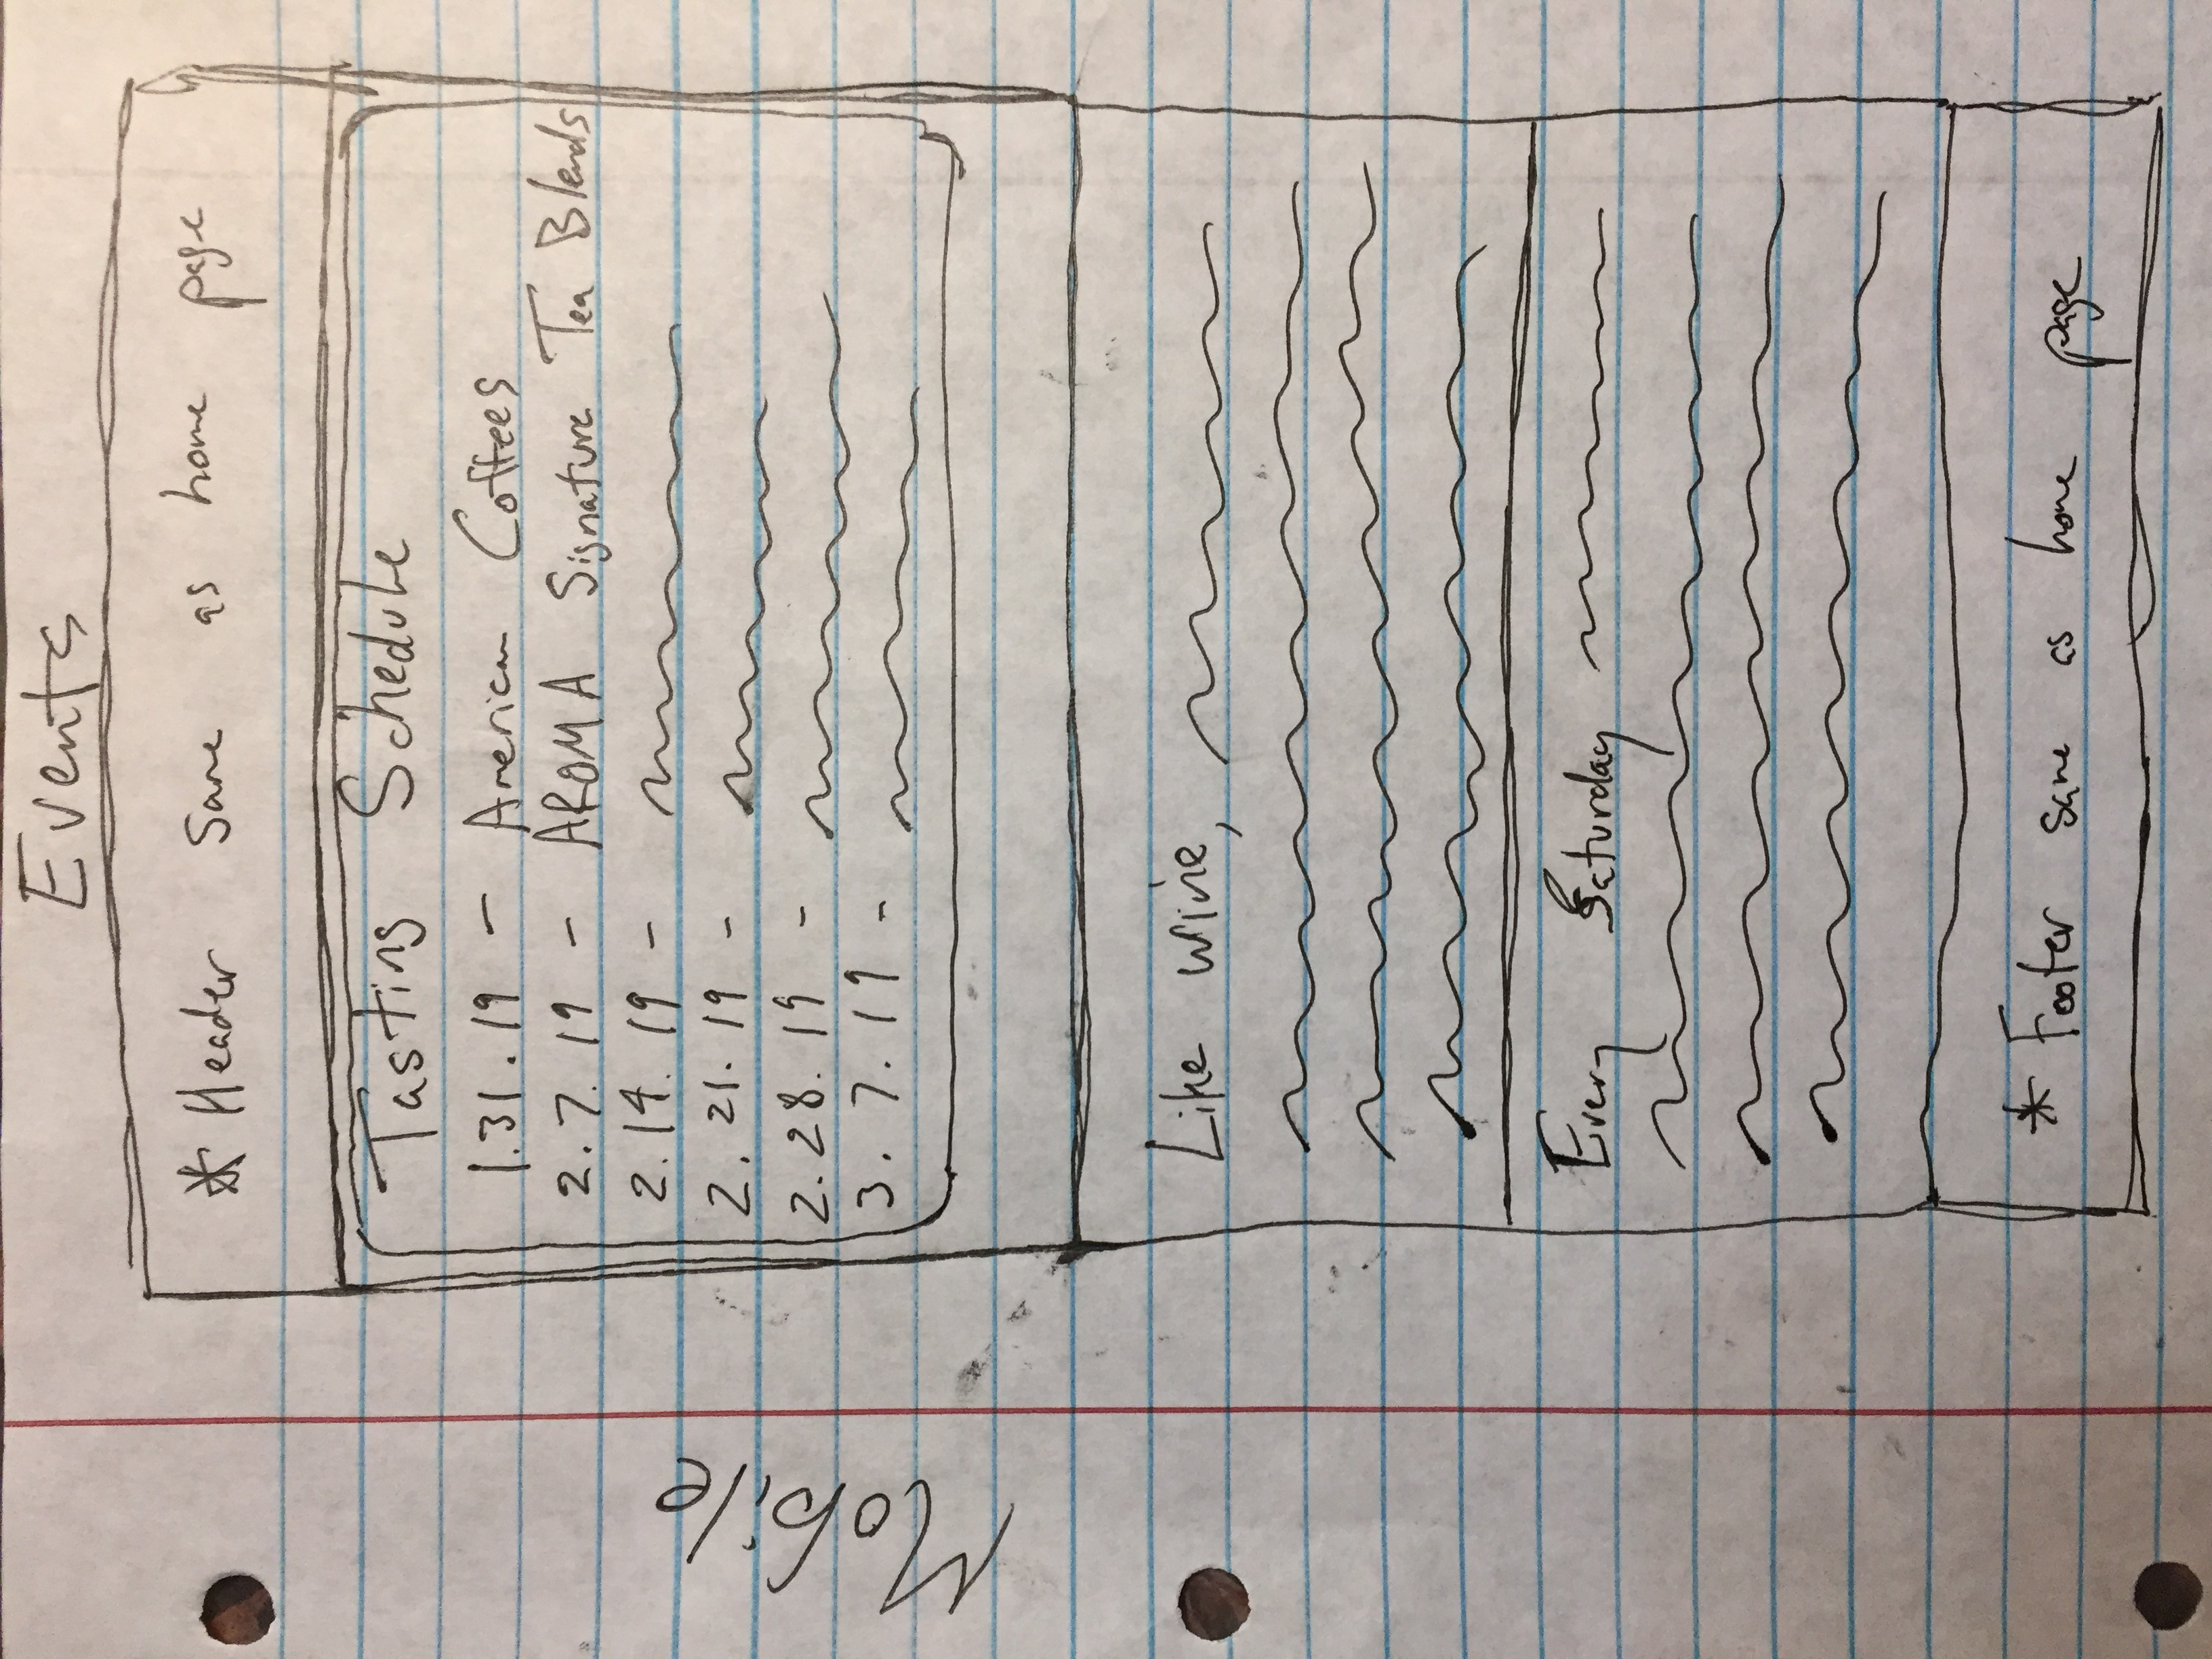 Events
* Header same as home page
Tasting Schedule
1.31.19 - American Coffees
2.7.19 - AROMA Signature Tea Blends
2.14.19 -
2.21.19 -
2.28.19 -
3.7.19 -
Mobile
Like wine,
Every Saturday
* Footer same as home page